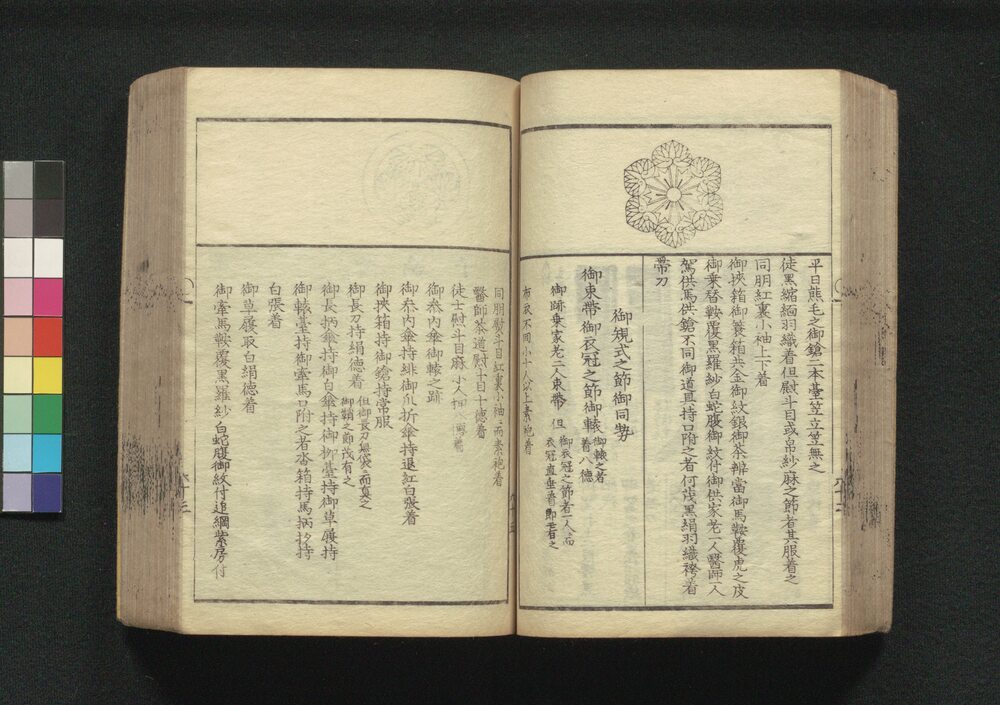 平日熊毛之御鎗二本臺笠立笠無之
徒黒縮緬羽織着但慰斗目或帛紗麻之節者其服着之
同朋紅裏小袖上下着
御挾箱御簑箱共金御紋銀御茶辨當御馬鞍覆虎之皮
御乗替鞍覆黒羅紗白蛇腹御紋付御供家老一人醫師一人
駕供馬供鎗不同御道具持口附之者何茂黒絹羽織袴着
帶刀
御規式之節御同勢
御束帶御衣冠之節御轅 御轅之者着八德
御跡乗家老二人束帶 但 御衣冠之節者二人而衣冠直垂着即之
布衣不同小十人以上素袍着
同朋熨斗目紅裏小袖而素袍着
醫師茶道慰斗目十德着
徒士慰斗目麻
御参内傘御轅之跡
御参内傘持緋御爪折傘持退紅白張着
御挾箱持御鎗持常服
御長刀持絹德着 但御長刀無袋而真之御鞘之節茂有之
御長柄傘持御白傘持御抄臺持御草履持
御轅臺持御牽馬口附之者沓箱持馬柄杓持
白張着
御草履取白絹德着
御牽馬鞍覆黒羅紗白蛇腹御紋付追綱紫房付